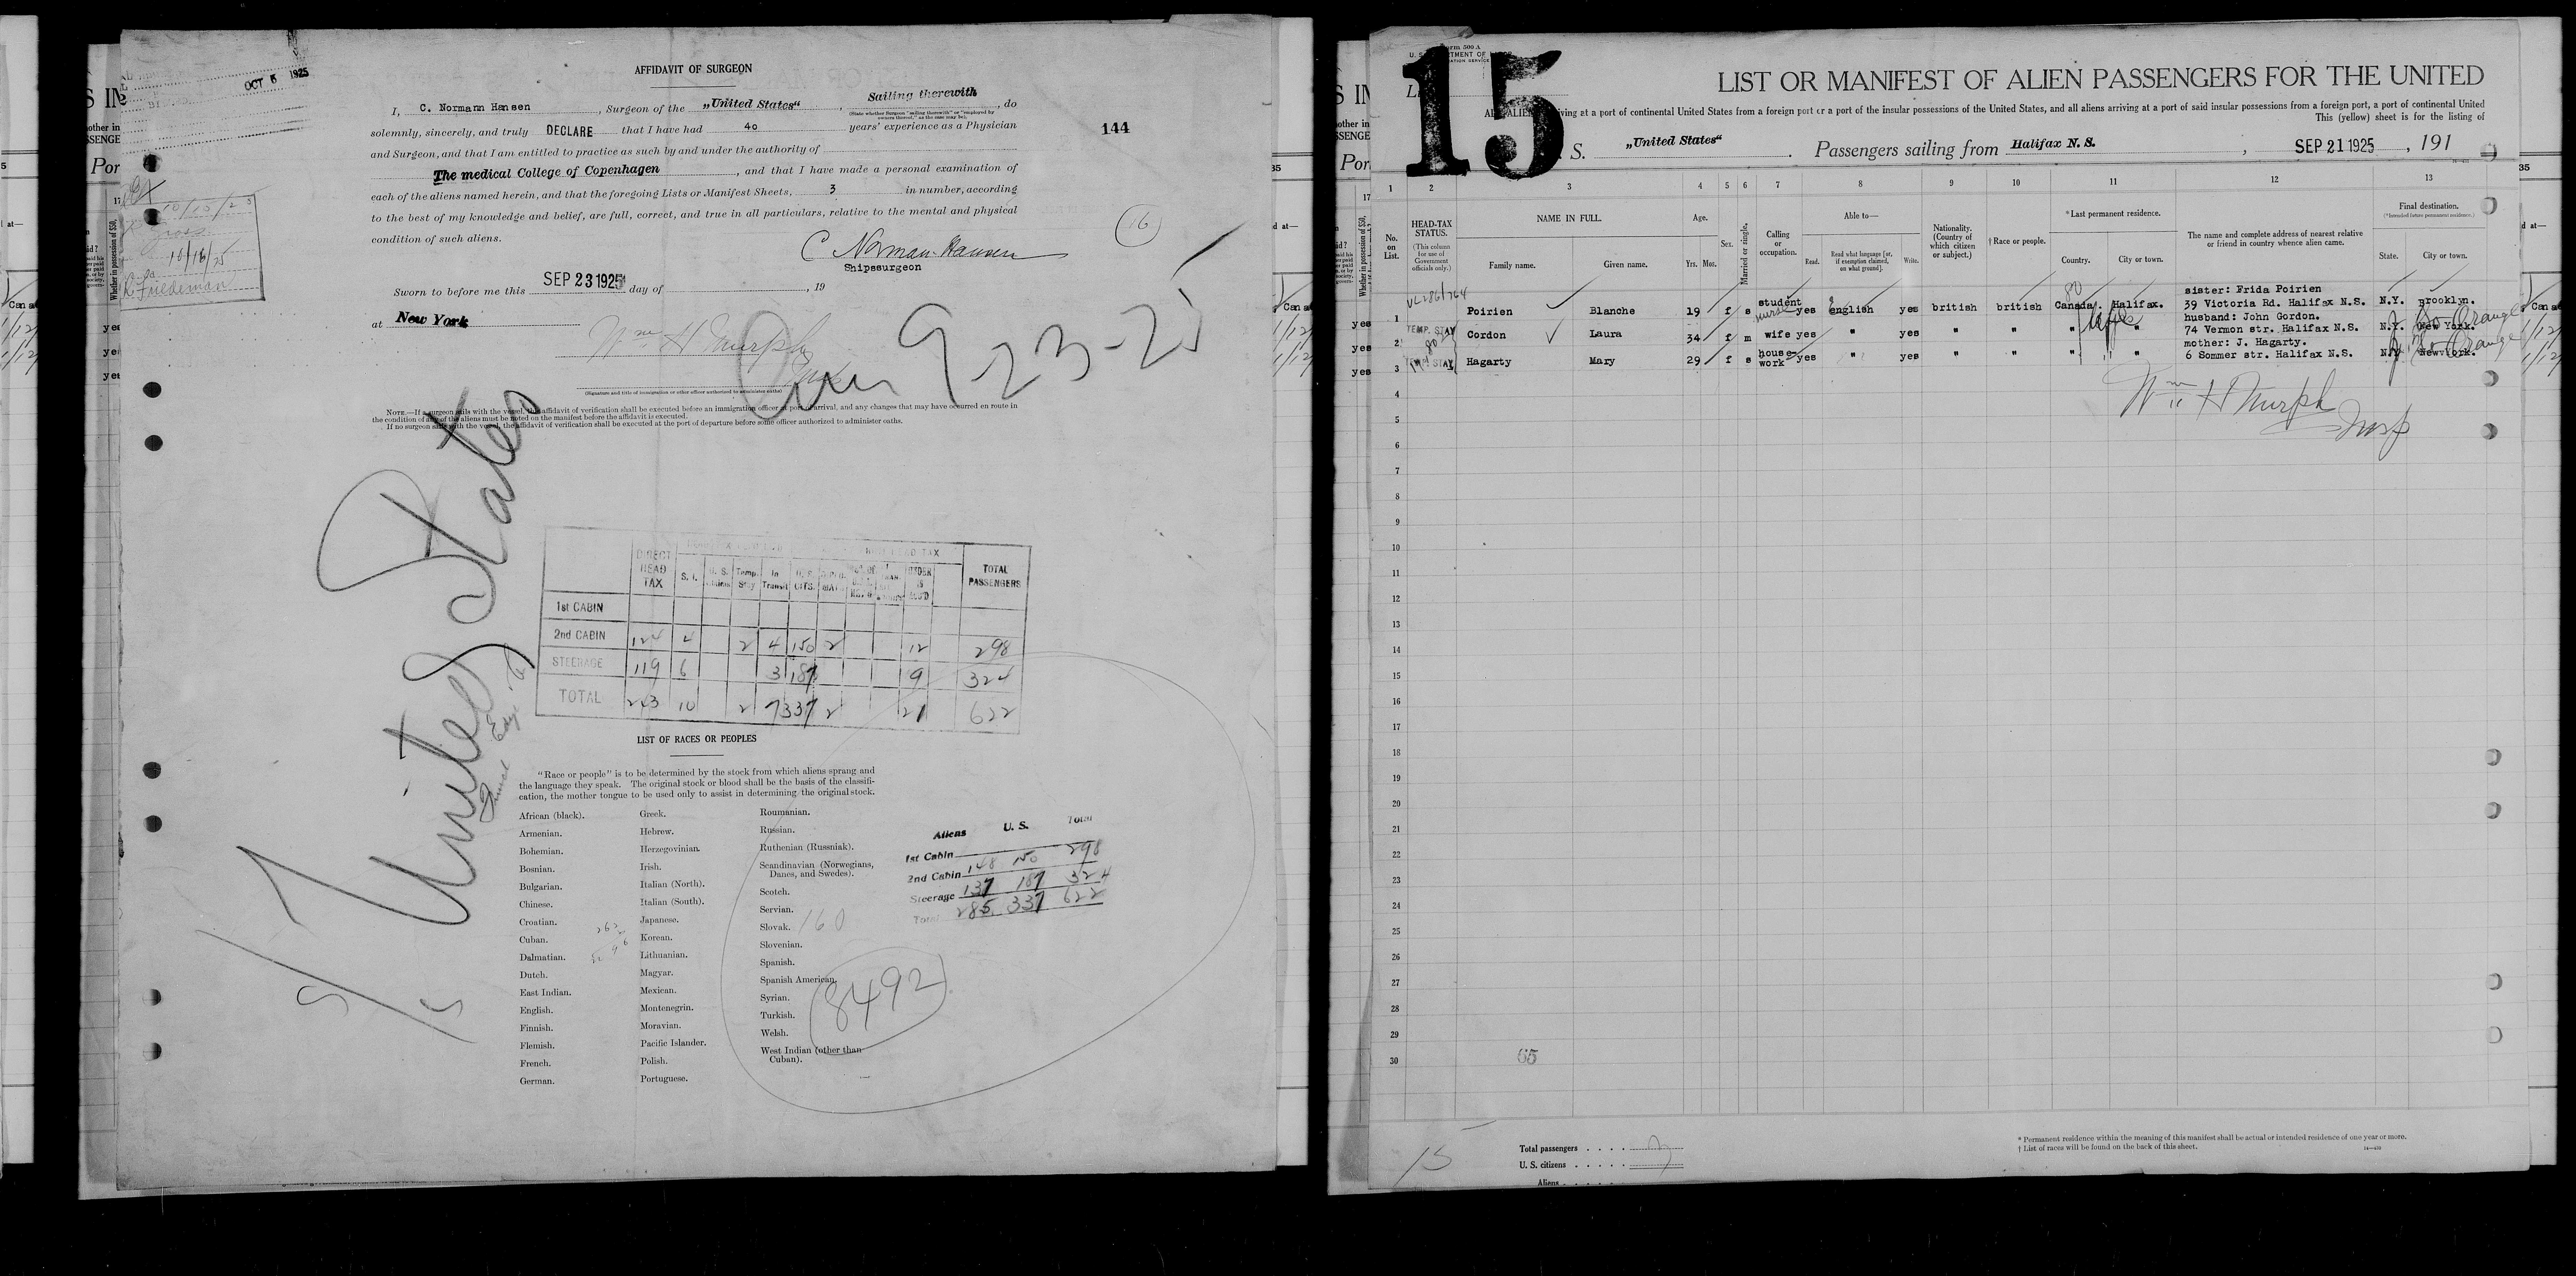 OCT 5 1925
AFFIDAVIT OF SURGEON
I, C. Normann Hansen, Surgeon of the „United States“, Sailing therewith, do
(State whether Surgeon "sailing therewith" or "employed by owners thereof," as the case may be).
solemnly, sincerely, and truly DECLARE that I have had 40 years' experience as a Physician
144
and Surgeon, and that I am entitled to practice as such by and under the authority of
The medical College of Copenhagen, and that I have made a personal examination of
each of the aliens named herein, and that the foregoing Lists or Manifest Sheets, 3 in number, according
to the best of my knowledge and belief, are full, correct, and true in all particulars, relative to the mental and physical
condition of such aliens.
16
C Norman-Hansen
Shipssurgeon
10/15/25
Gross
10/16/25
Friedeman
Sworn to before me this SEP 23 1925 day of , 19
at New York
Wm H Murphy
9-23-25
(Signature and title of immigration or other officer authorized to administer oaths)
NOTE.—If a surgeon sails with the vessel, the affidavit of verification shall be executed before an immigration officer at port of arrival, and any changes that may have occurred en route in
the condition of any of the aliens must be noted on the manifest before the affidavit is executed.
If no surgeon sails with the vessel, the affidavit of verification shall be executed at the port of departure before some officer authorized to administer oaths.
United States
DIRECT HEAD TAX S. I. U. S. Temp. Stay In Transit U. S. CITS. UNDER 16 TOTAL PASSENGERS
1st CABIN
2nd CABIN 124 4 2 4 150 2 12 298
STEERAGE 119 6 3 187 9 324
TOTAL 243 10 2 7 337 2 21 622
LIST OF RACES OR PEOPLES
"Race or people" is to be determined by the stock from which aliens sprang and
the language they speak. The original stock or blood shall be the basis of the classifi-
cation, the mother tongue to be used only to assist in determining the original stock.
African (black).
Armenian.
Bohemian.
Bosnian.
Bulgarian.
Chinese.
Croatian.
Cuban.
Dalmatian.
Dutch.
East Indian.
English.
Finnish.
Flemish.
French.
German.
Greek.
Hebrew.
Herzegovinian.
Irish.
Italian (North).
Italian (South).
Japanese.
Korean.
Lithuanian.
Magyar.
Mexican.
Montenegrin.
Moravian.
Pacific Islander.
Polish.
Portuguese.
Roumanian.
Russian.
Ruthenian (Russniak).
Scandinavian (Norwegians,
Danes, and Swedes).
Scotch.
Servian.
Slovak.
Slovenian.
Spanish.
Spanish American.
Syrian.
Turkish.
Welsh.
West Indian (other than
Cuban).
160
8492
Aliens U. S. Total
1st Cabin
2nd Cabin 148 150 298
Steerage 137 187 324
Total 285 337 622
Form 500 A
15
LIST OR MANIFEST OF ALIEN PASSENGERS FOR THE UNITED
ALL ALIENS arriving at a port of continental United States from a foreign port or a port of the insular possessions of the United States, and all aliens arriving at a port of said insular possessions from a foreign port, a port of continental United
This (yellow) sheet is for the listing of
S. S. „United States“. Passengers sailing from Halifax N. S., SEP 21 1925, 191
1 2 3 4 5 6 7 8 9 10 11 12 13
No. on List.
HEAD-TAX STATUS.
(This column for use of Government officials only.)
NAME IN FULL.
Family name. Given name.
Age.
Yrs. Mos.
Sex.
Married or single.
Calling or occupation.
Able to—
Read. Read what language [or, if exemption claimed, on what ground]. Write.
Nationality. (Country of which citizen or subject.)
†Race or people.
*Last permanent residence.
Country. City or town.
The name and complete address of nearest relative or friend in country whence alien came.
Final destination.
(*Intended future permanent residence.)
State. City or town.
1 Poirien Blanche 19 f s student nurse yes english yes british british Canada. Halifax. sister: Frida Poirien 39 Victoria Rd. Halifax N.S. N.Y. Brooklyn.
2 TEMP. STAY Cordon Laura 34 f m wife yes " yes " " " " husband: John Gordon. 74 Vermon str. Halifax N.S. N.Y. New York. So Orange
3 TEMP. STAY Hagarty Mary 29 f s house-work yes " yes " " " " mother: J. Hagarty. 6 Sommer str. Halifax N.S. N.Y. New York. So Orange
Wm H Murphy
Insp
4
5
6
7
8
9
10
11
12
13
14
15
16
17
18
19
20
21
22
23
24
25
26
27
28
29
30
65
15
Total passengers . . . . 3
U. S. citizens . . . . .
Aliens . . . . .
* Permanent residence within the meaning of this manifest shall be actual or intended residence of one year or more.
† List of races will be found on the back of this sheet.